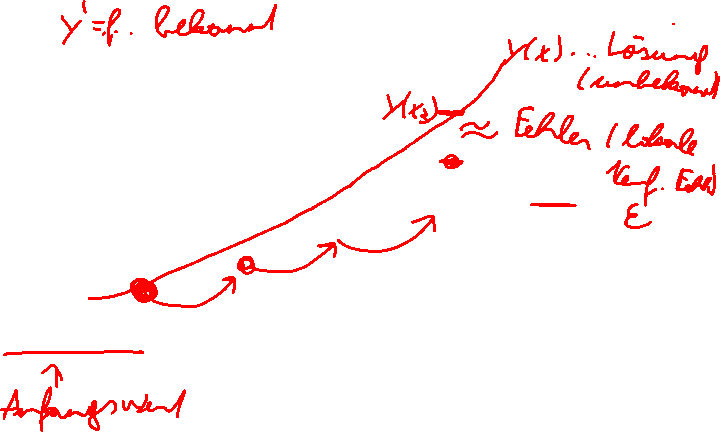 y'=f. bekannt
y(x) ... Lösung
(unbekannt)
y(x₃)
≈ Fehler (lokale
Verf. Err)
ε
Anfangswert